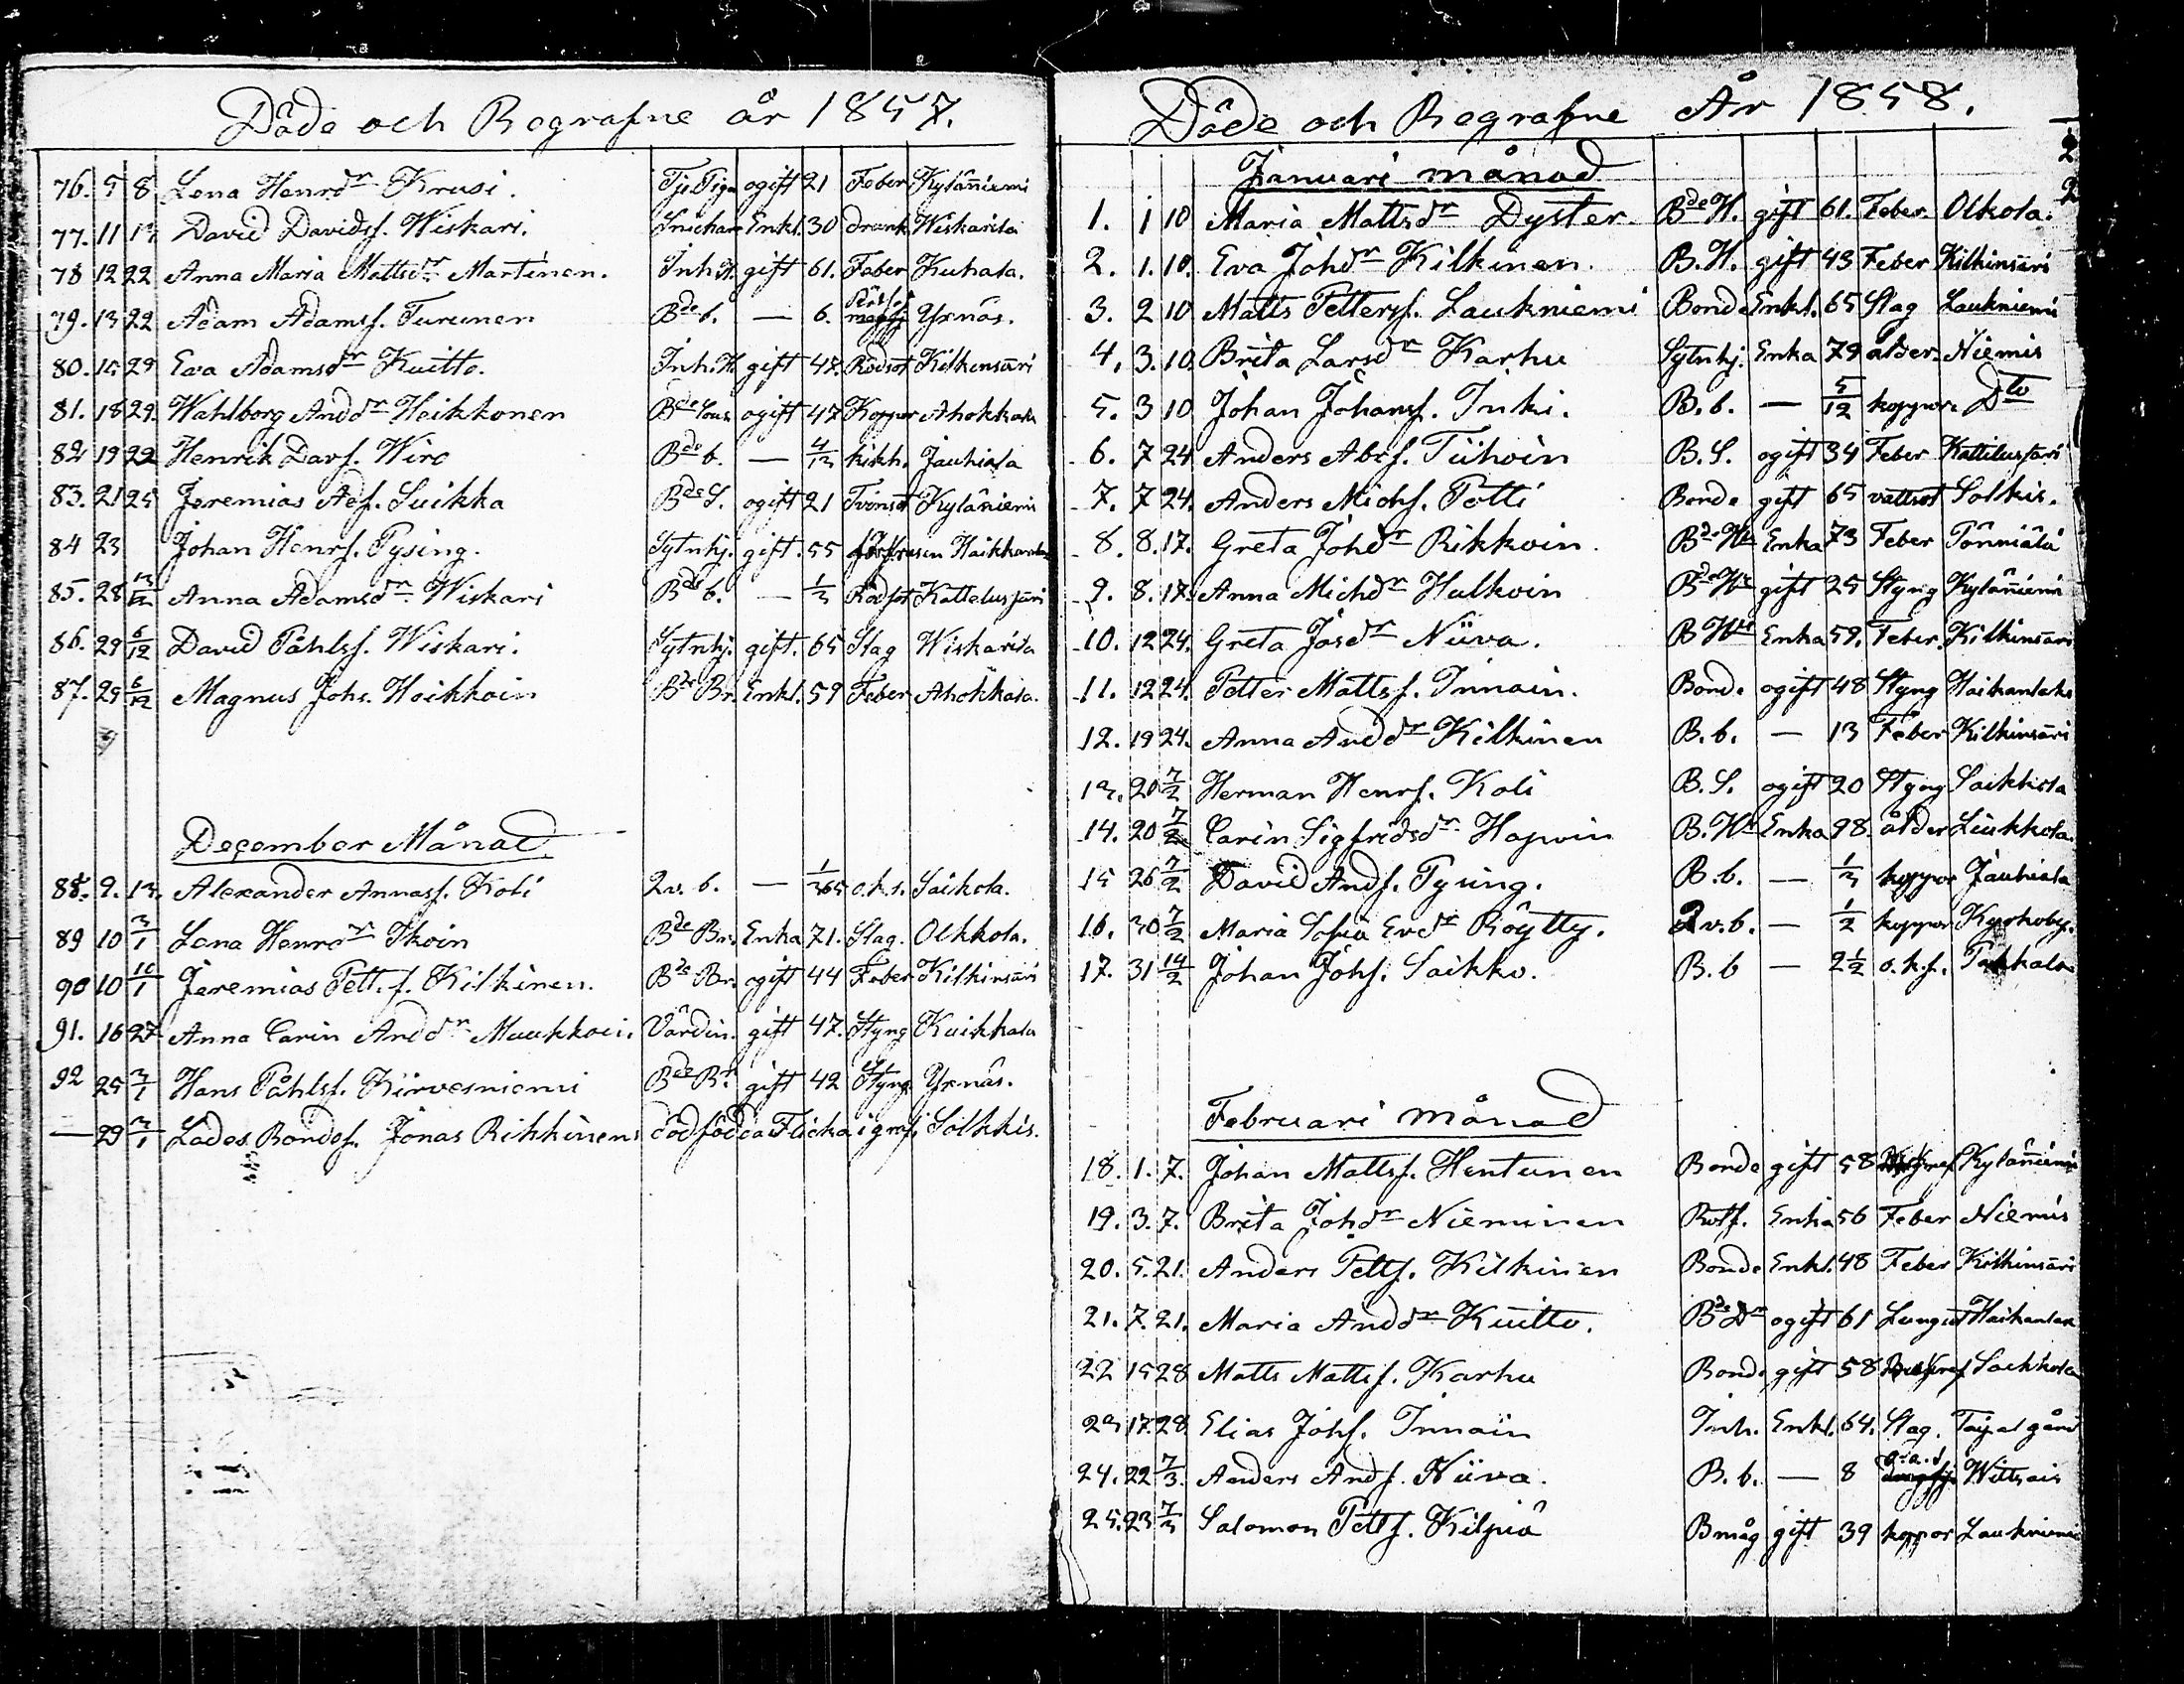 Döde och Begrafne år 1857.
76. 5 8 Lena Henrdr Krusi. Tje.Piga ogift 21 Feber Kylänniemi
77. 11 Davidsf. Wiskari. Enkl. 30 drunk. Wiskarila
78 12 22 Anna Maria Mattsdr Martinen. Inh.H. gift 61. Feber Kuhala.
79. 13 22 Adam Adamsf. Turunen Bde b. — 6. Yxnäs.
80. 15 29 Eva Adamsdr Kuitto. Inh.H. gift 47. Rödsot Kilkinsari
81. 18 29. Wahlborg Anddr Heikkonen ogift 47 Koppor Ahokkala
82 19 22 Henrik Davs. Wiro Bde b. — 4/12 kikh. Jauhiala
83. 21 25 Jeremias Adf. Suikka Bde S. ogift 21 Tvinsot Kylänniemi
84 23 Johan Henrs. Pysing. Sytnhj. gift. 55 förfrusen
85. 28 13/12 Anna Adamsdr Wiskari Bde b. — 1/3 Rödsot Kattelussari
86. 29 6/12 David Påhlsf. Wiskari. Sytnhj. gift. 65 Slag Wiskarila
87. 29 6/12 Magnus Johs. Hoikkoin Bde Br. Enkl. 59 Feber Ahokkala.
December Månad
88. 9. 13. Alexander Annasf. Koli Qv. b. — 1/365 o.k.s. Saikola.
89 10 3/1 Lena Henrdr Ikoin Bde Br. Enka 71. Slag. Olkkola.
90 10 10/1 Jeremias Pett.f. Kilkinen. Bde Br. ogift 44 Feber Kilkinsäri
91. 16 27 Anna Carin Anddr Muukkoin. Värdin. gift 47. Styng Kuikkala
92 25 3/1 Hans Påhlsf. Kirvesniemi Bde Br. gift 42 Styng Yxnäs.
— 29 3/1 Lades Bondes. Jonas Rikkinens dödfödda Flicka i graf. Solkkis.
Döde och Begrafne År 1858.
Januari månad
1. 1 10 Maria Mattsdr Dyster. Bde H. gift 61. Feber. Olkola.
2. 1. 10. Eva Johdr Kilkinen. B.H. gift 43 Feber Kilkinsäri
3. 2 10 Matts Pettersf. Laukniemi Bonde Enkl. 65 Slag Laukniemi
4. 3. 10. Brita Larsdr Karhu Sytnhj. Enka 79 ålder Niemis
5. 3 10 Johan Johansf. Inki. B.b. — 5/12 koppor. Dto
6. 7 24 Anders Abrf. Tiihoin B.S. ogift 34 Feber Kattelussari
7. 7 24. Anders Michf. Potti Bonde gift 65 vattsot Solkis.
8. 8. 17. Greta Johdr Rikkoin. Bde H. Enka 73 Feber Pönniälä
9. 8. 17. Anna Michdr Hulkoin Bde H. gift 25 Styng Kylänniemi
10. 12 24. Greta Josdr Niiva. B H. Enka 59. Feber. Kilkinsäri
11. 12 24. Petter Mattsf. Innain. Bonde ogift 48 Styng Haikanlaks
12. 19 24. Anna Anddr Kilkinen B.b. — 13 Feber Kilkinsäri
13. 20 7/2 Herman Henrf. Koli B.S. ogift 20 Styng Saikkola
14. 20 7/2 Carin Sigfridsdr Hojvoin B.H. Enka 98. ålder Liukkola.
15 26 7/2 David Andf. Pysing. B.b. — 1/3 koppor Jauhiala
16. 30 7/2 Maria Sofia Evdr Röytty. Qv.b. — 1/2 koppor Kyrkoby.
17. 31 14/2 Johan Johf. Saikko. B.b — 2 1/2 o.k.s. Pakkala
Februari månad
18. 1. 7. Johan Mattsf. Hentunen Bonde gift 58 Kylänniemi
19. 3. 7. Brita Johdr Nieminen Rotf. Enka 56 Feber Niemis
20. 5. 21. Anders Pettf. Kilkinen Bonde Enkl. 48 Feber Kilkinsäri
21. 7. 21. Maria Anddr Kuitto. Bde Dr ogift 61 Lungsot Haikanlax
22 15 28 Matts Mattsf. Karhu Bonde gift 58 Saikkola
23 17. 28. Elias Johf. Innain Inh. Enkl. 64. Slag.
24. 22 7/3. Anders Andf. Niiva. B.b. — 8 Wittsais
25. 23 7/3 Salomon Pettf. Kilpiä Bmåg gift 39 koppor Laukniemi